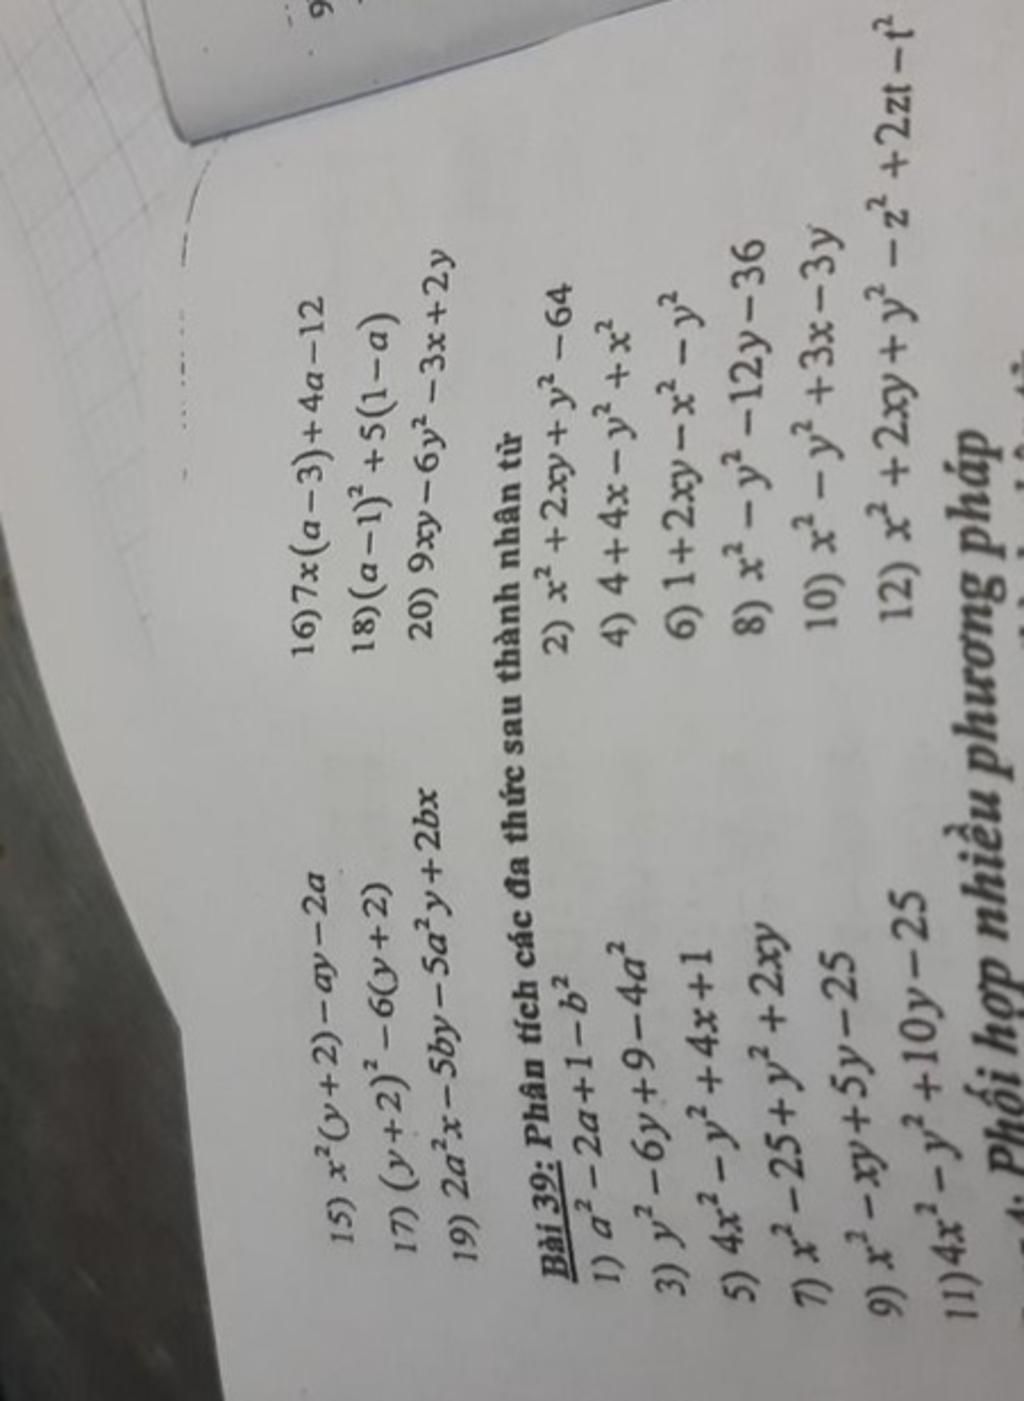 15) x²(y+2)−ay−2a 16)7x(a−3)+4a−12
17) (y+2)²−6(y+2) 18)(a−1)²+5(1−a)
19) 2a²x−5by−5a²y+2bx 20) 9xy−6y²−3x+2y
Bài 39: Phân tích các đa thức sau thành nhân tử
1) a²−2a+1−b² 2) x²+2xy+y²−64
3) y²−6y+9−4a² 4) 4+4x−y²+x²
5) 4x²−y²+4x+1 6) 1+2xy−x²−y²
7) x²−25+y²+2xy 8) x²−y²−12y−36
9) x²−xy+5y−25 10) x²−y²+3x−3y
11)4x²−y²+10y−25 12) x²+2xy+y²−z²+2zt−t²
4: Phối hợp nhiều phương pháp